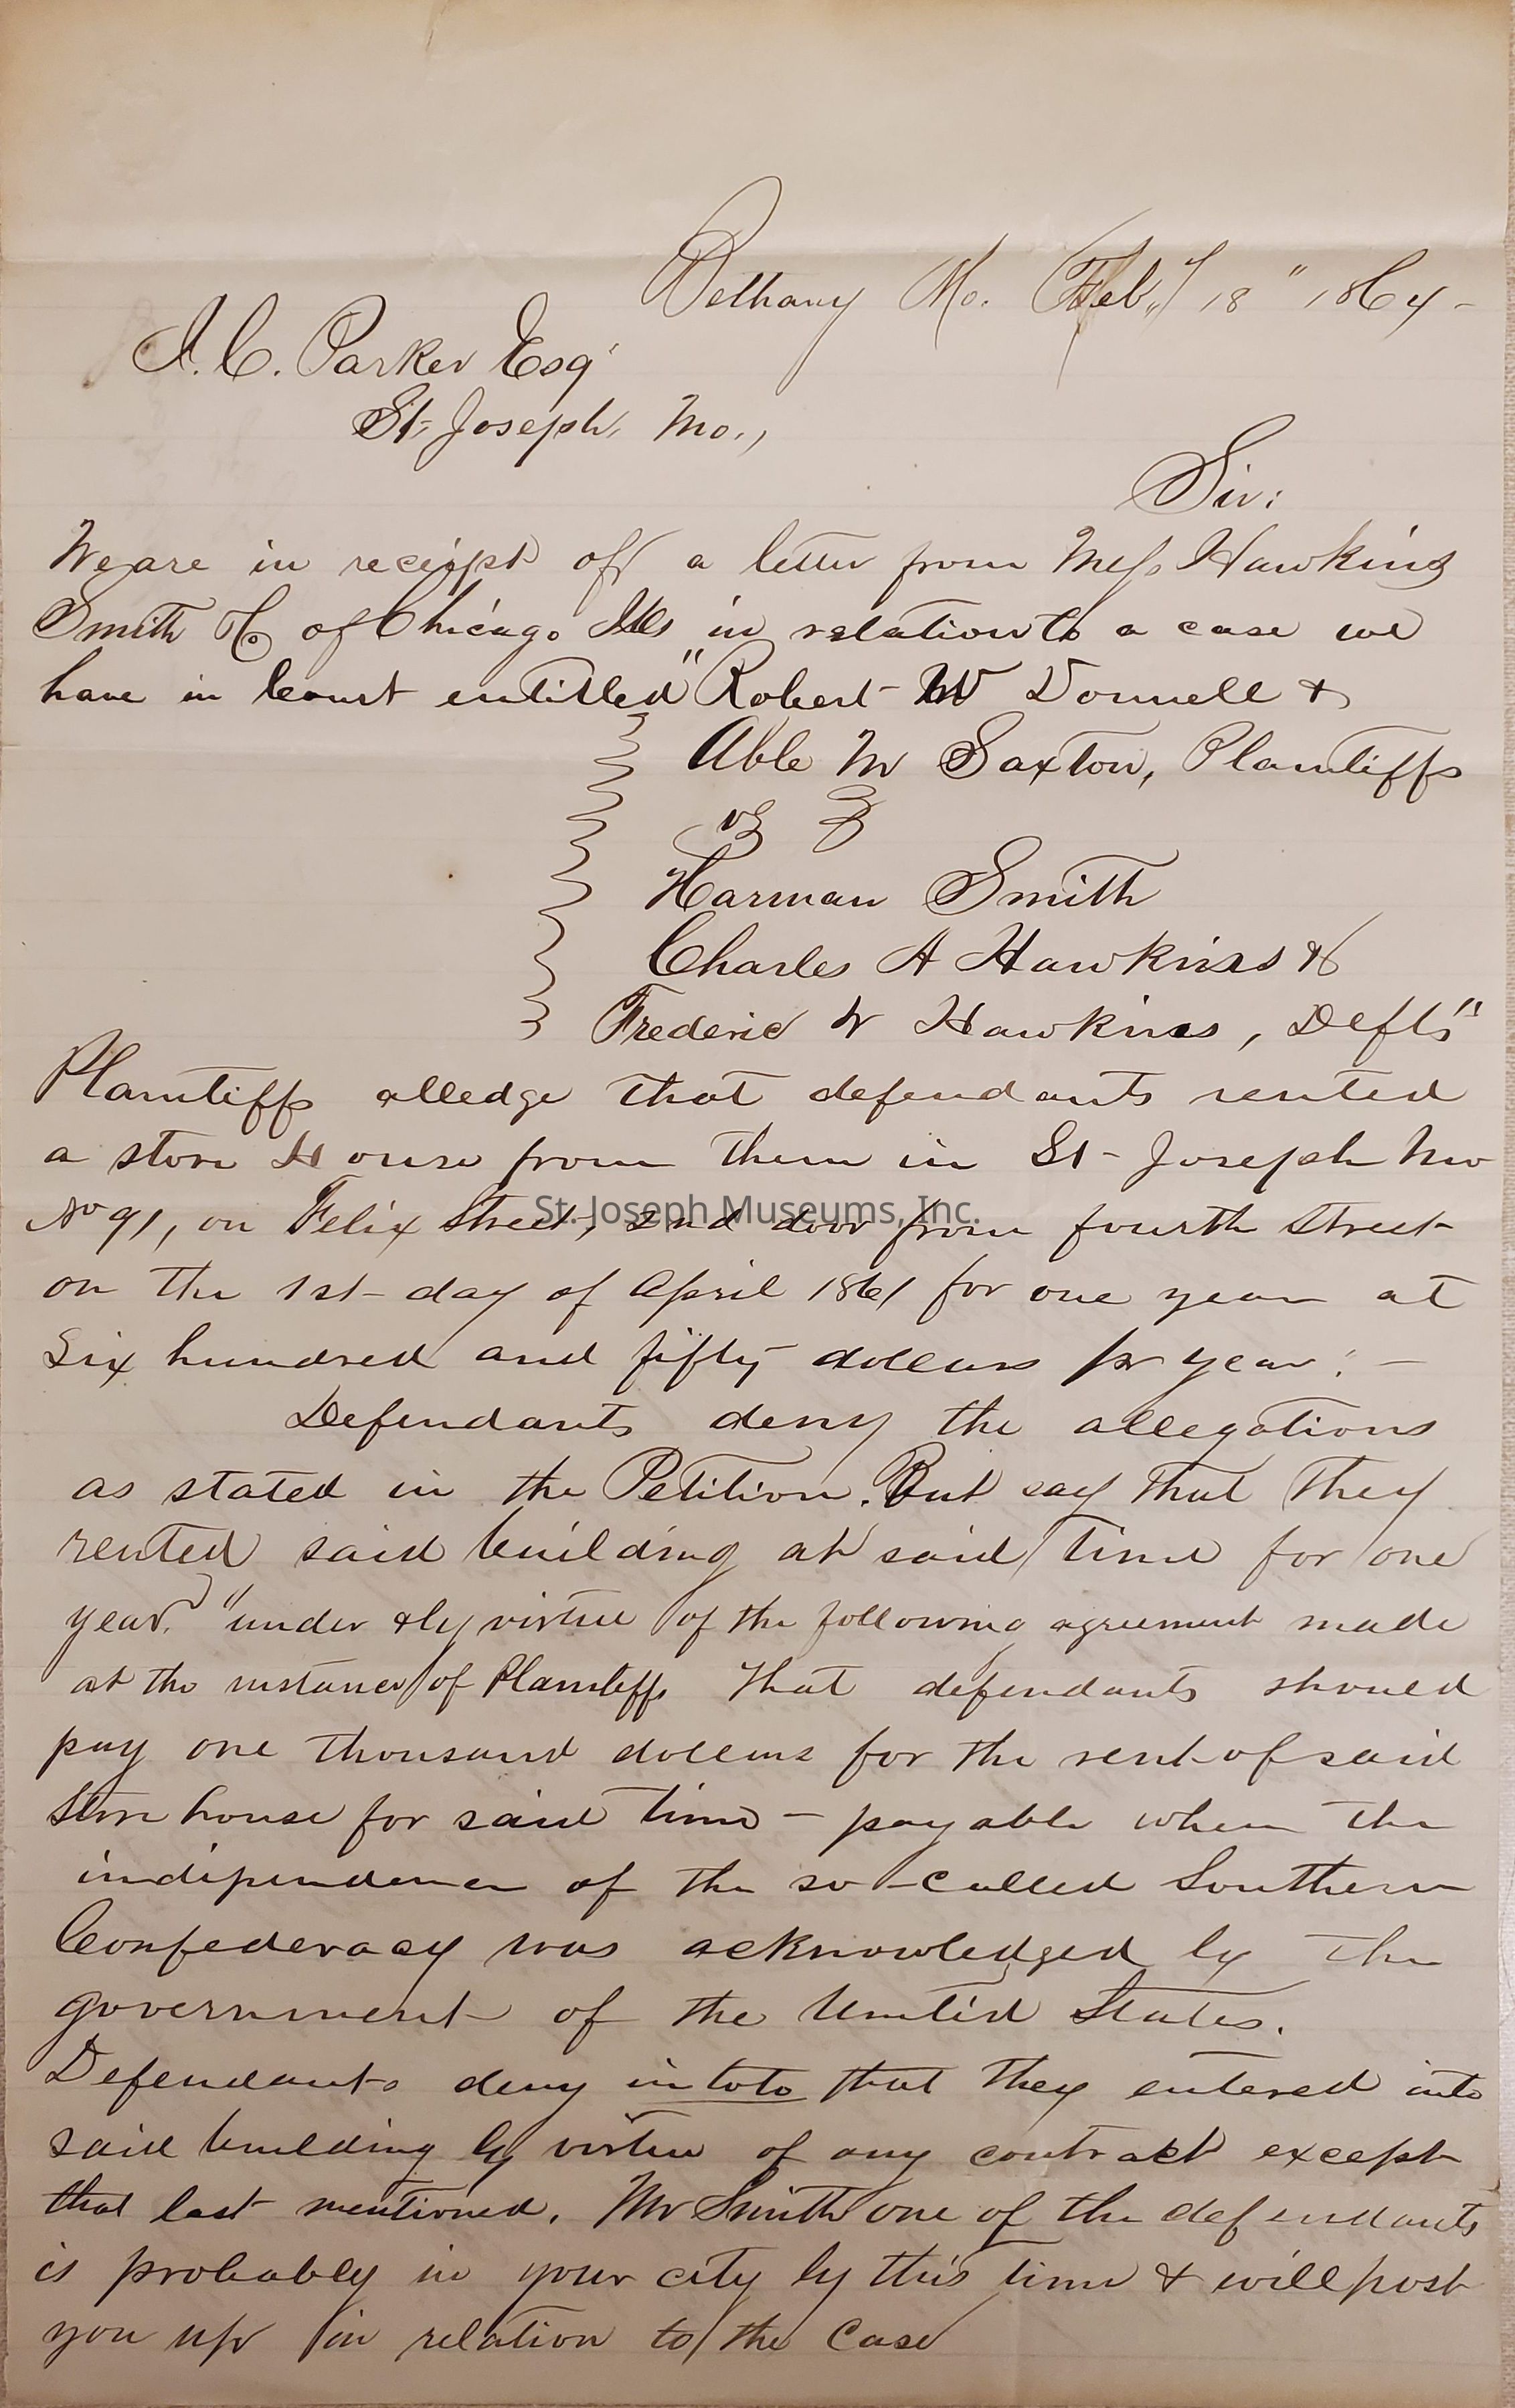 Bethany Mo. Feby 18" 1864-
I. C. Parker Esq
St. Joseph, Mo.,
Sir:
We are in receipt of a letter from Mess Hawkins
Smith & Co of Chicago Ills in relation to a case we
have in Court entitled "Robert W Donnell &
Able M Saxton, Plantiffs
vs
Harman Smith
Charles A Hawkins &
Frederic W Hawkins, Defts"
Plantiffs alledge that defendants rented
a store House from them in St- Joseph Mo
No 91, on Felix Street, 2nd door from fourth Street
on the 1st- day of April 1861 for one year at
Six hundred and fifty dollars pr year. -
Defendants deny the allegations
as stated in the Petition. But say that they
rented said building at said time for one
year. "under & by virtue of the following agreement made
at the instance of Plantiffs that defendants should
pay one thousand dollars for the rent of said
Store house for said time - payable when the
independence of the so-called Southern
Confederacy was acknowledged by the
government of the United States.
Defendants deny in toto that they entered into
said building by virtue of any contract except
that last mentioned. Mr Smith one of the defendants
is probably in your city by this time & will post
you up in relation to the Case
St. Joseph Museums, Inc.